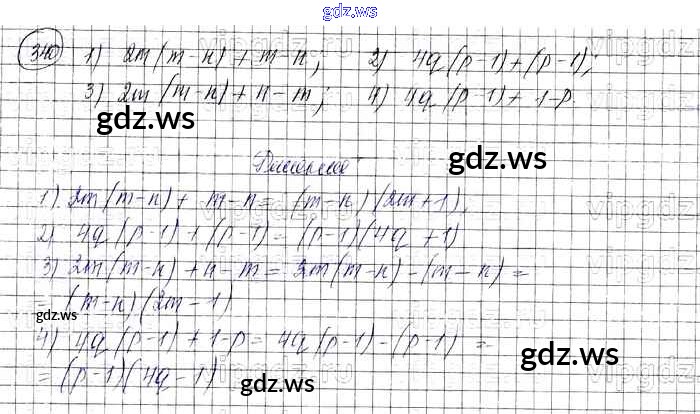 gdz.ws
340 1) 2m(m-n)+m-n; 2) 4q(p-1)+(p-1);
3) 2m(m-n)+n-m; 4) 4q(p-1)+1-p.
gdz.ws gdz.ws
1) 2m(m-n)+m-n=(m-n)(2m+1),
2) 4q(p-1)+(p-1)=(p-1)(4q+1)
3) 2m(m-n)+n-m=2m(m-n)-(m-n)=
=(m-n)(2m-1)
gdz.ws
4) 4q(p-1)+1-p=4q(p-1)-(p-1)=
=(p-1)(4q-1)
gdz.ws gdz.ws